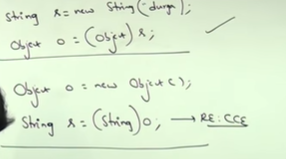 String s = new String("durga");
Object o = (Object) s;
Object o = new Object();
String s = (String) o; → RE: CCE